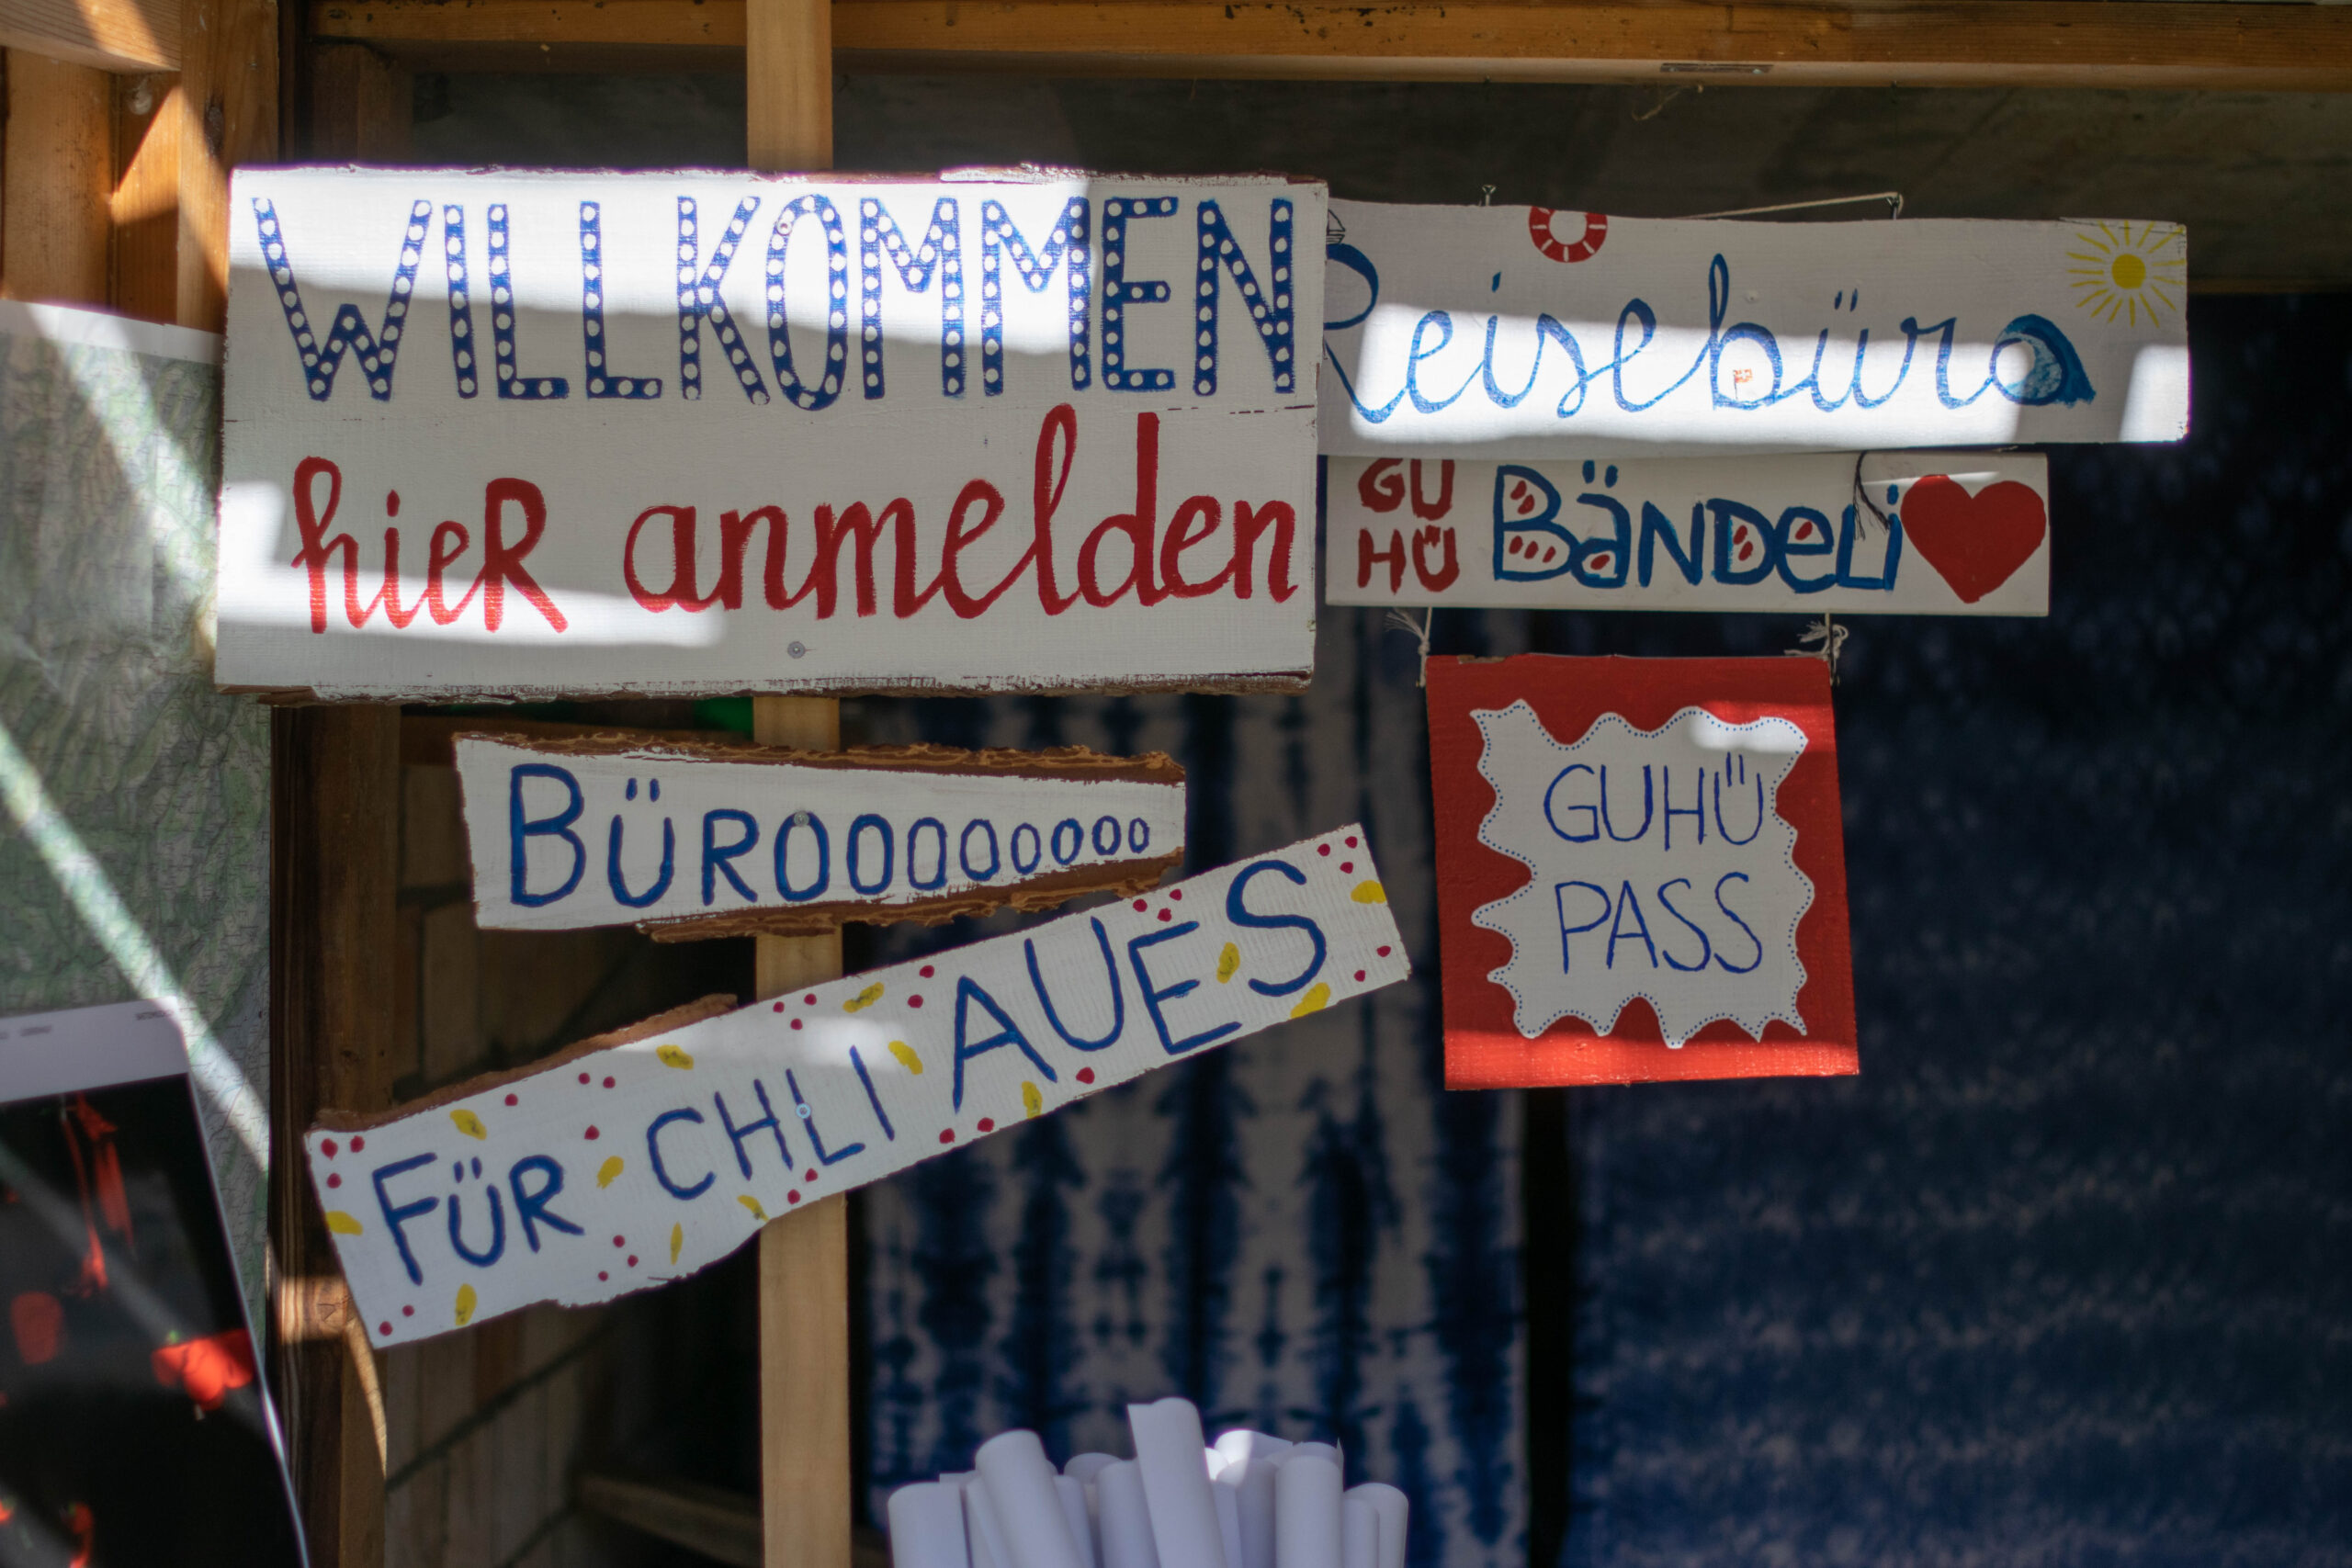 WILLKOMMEN
hieR anmelden
Reisebüro
GU
HÜ
BÄNDeLi
BÜROOOOOOOO
FÜR CHLI AUES
GUHÜ
PASS